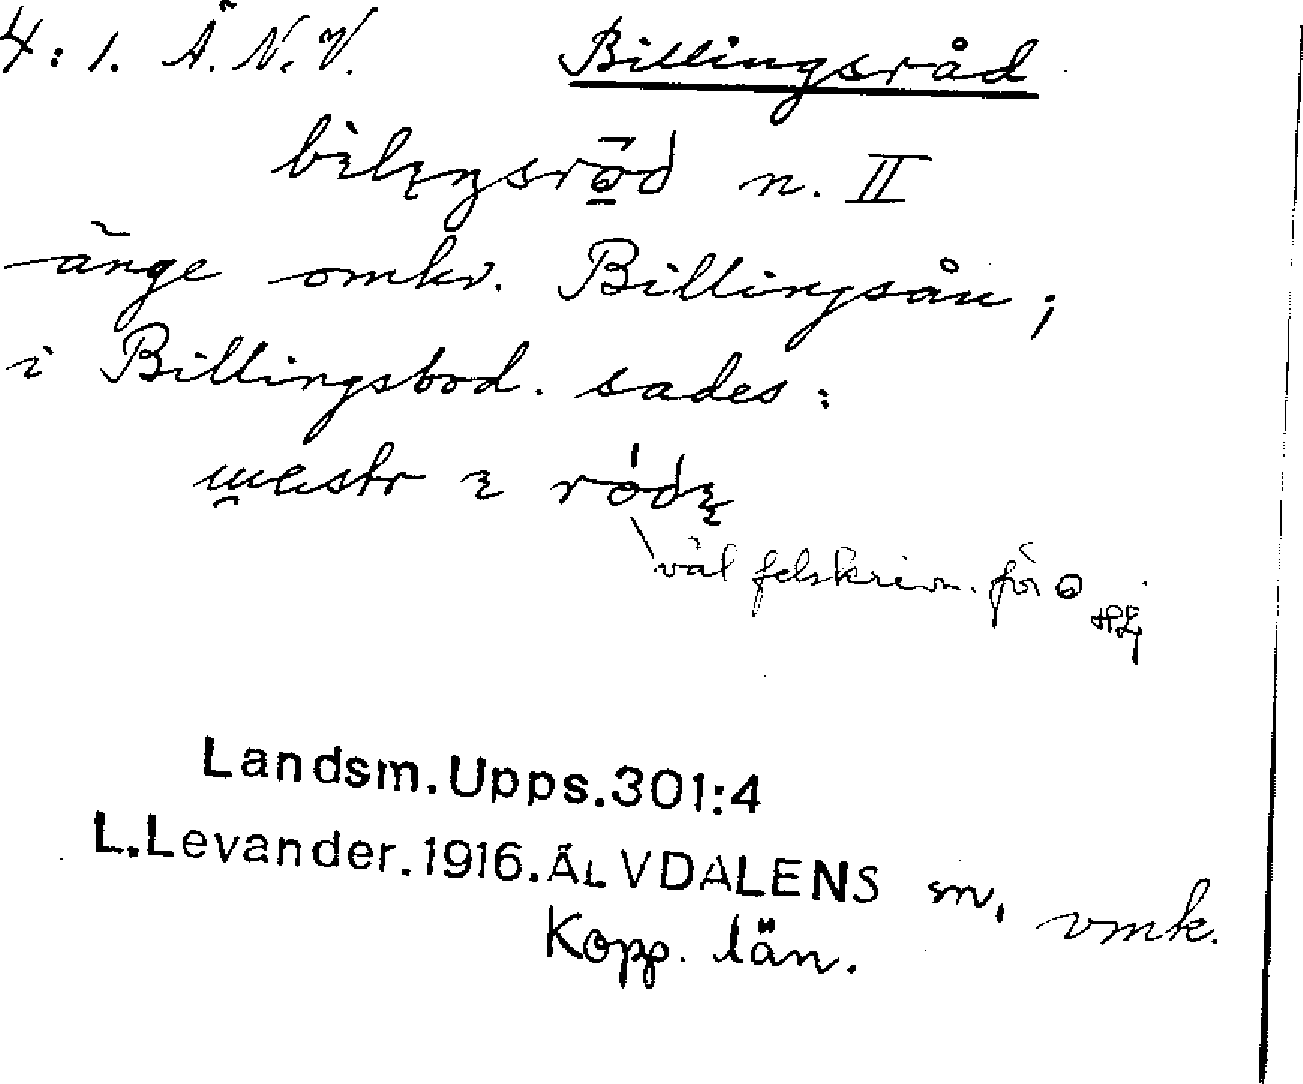 4:1. Ä.N.V. Billingsråd
n. II
änge omkr. Billingsån;
i Billingsbod. sades:
väl felskrivn. för
Landsm.Upps.301:4
L.Levander.1916.ÄLVDALENS sn, vmk.
Kopp. län.